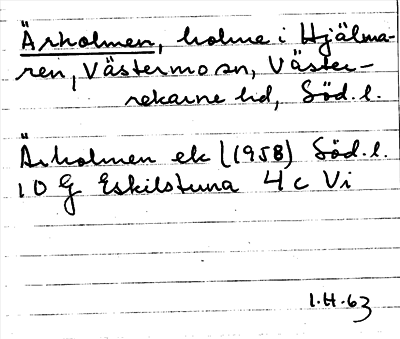 Ärholmen, holme i Hjälma-
ren, Västermo sn, Väster-
rekarne hd, Söd. l.
Ärholmen ek (1958) Söd. l.
10 G Eskilstuna 4 c Vi
1.H.63